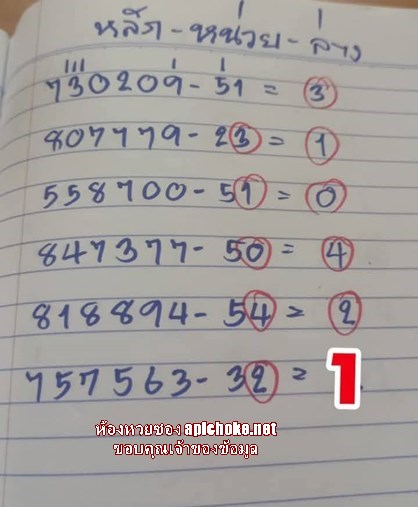 หลัก - หน่วย - ล่าง
730209 - 51 = 3
807779 - 23 = 1
558700 - 51 = 0
847377 - 50 = 4
818894 - 54 = 2
757563 - 32 = 1
ห้องหวยซอง apichoke.net
ขอบคุณเจ้าของข้อมูล